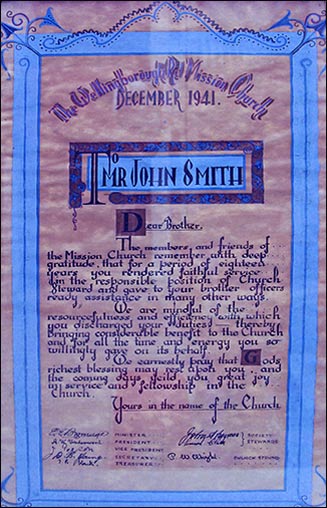 The Wellingborough Rd Mission Church
DECEMBER 1941.
To
MR JOHN SMITH
Dear Brother,
The members and friends of
the Mission Church remember with deep
gratitude, that for a period of eighteen
years you rendered faithful service
in the responsible position of Church
Steward and gave to your brother officers
ready assistance in many other ways.
We are mindful of the
resourcefulness and efficiency with which
you discharged your duties – thereby
bringing considerable benefit to the Church
and for all the time and energy you so
willingly gave on its behalf.
We earnestly pray that Gods
richest blessing may rest upon you and
the coming days yield you great joy
in service and fellowship in the
Church.
Yours in the name of the Church.
MINISTER
PRESIDENT
VICE PRESIDENT
SECRETARY
TREASURER
SOCIETY
STEWARDS
C. W. Wright
CHURCH STEWARD